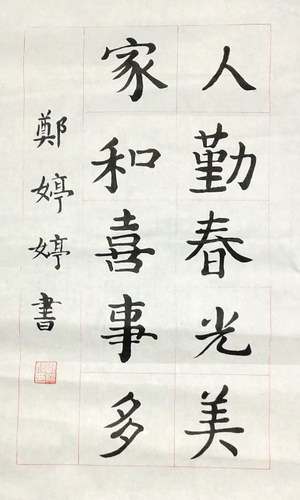 人勤春光美
家和喜事多
鄭婷婷書